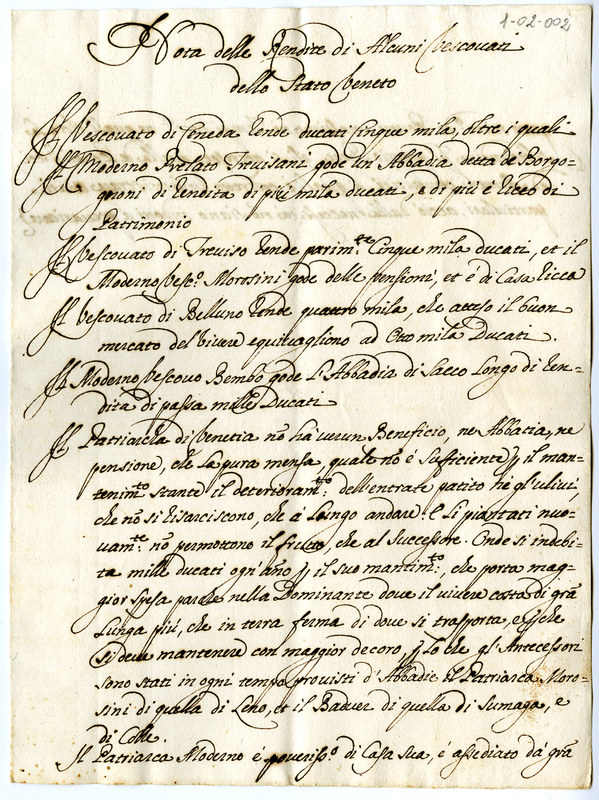 1-02-002
Nota delle Rendite di Alcuni Vescovati
dello Stato Veneto
Il Vescovato di Ceneda rende ducati Cinque mila, oltre i quali
Il Moderno Prelato Trevisani gode un' Abbadia detta de Borgo-
gnoni di rendita di più mila ducati, e di più è ricco di
Patrimonio
Il Vescovato di Treviso rende parim.te Cinque mila ducati, et il
Moderno Vesc.o Morosini gode delle pensioni, et è di Casa ricca
Il Vescovato di Belluno rende quattro mila, che atteso il buon
mercato del vivere equivagliono ad Otto mila Ducati.
Il Moderno Vescovo Bembo gode l'Abbadia di Sacco Longo di ren-
dita di passa mille Ducati
Il Patriarcha di Venetia nō há verun Beneficio, ne Abbatia, ne
pensione, che la pura mensa, quale nō é sufficiente p il man-
tenim.to stante il deterioram.to dell'entrate patito né gl'ulivi,
che nō si risarciscono, che á longo andare: e li piantati nuo-
vam.te nō permottono il frutto, che al Successore. Onde si indebi-
ta mille ducati ogn'año p il suo mantim.to, che porta mag-
gior spesa nella Dominante dove il vivere costa di grã
Lunga piú, che in terra ferma di dove si trasporta, e p che
si deve mantenere con maggior decoro, p lo che gl'Antecessori
sono stati in ogni tempo provisti d'Abbadie il Patriarca Moro-
sini di quella di Leno, et il Badoer di quella di Sumaga, e
di Colle.
Il Patriarca Moderno é poveriss.o di Casa sua, e assediato da grã